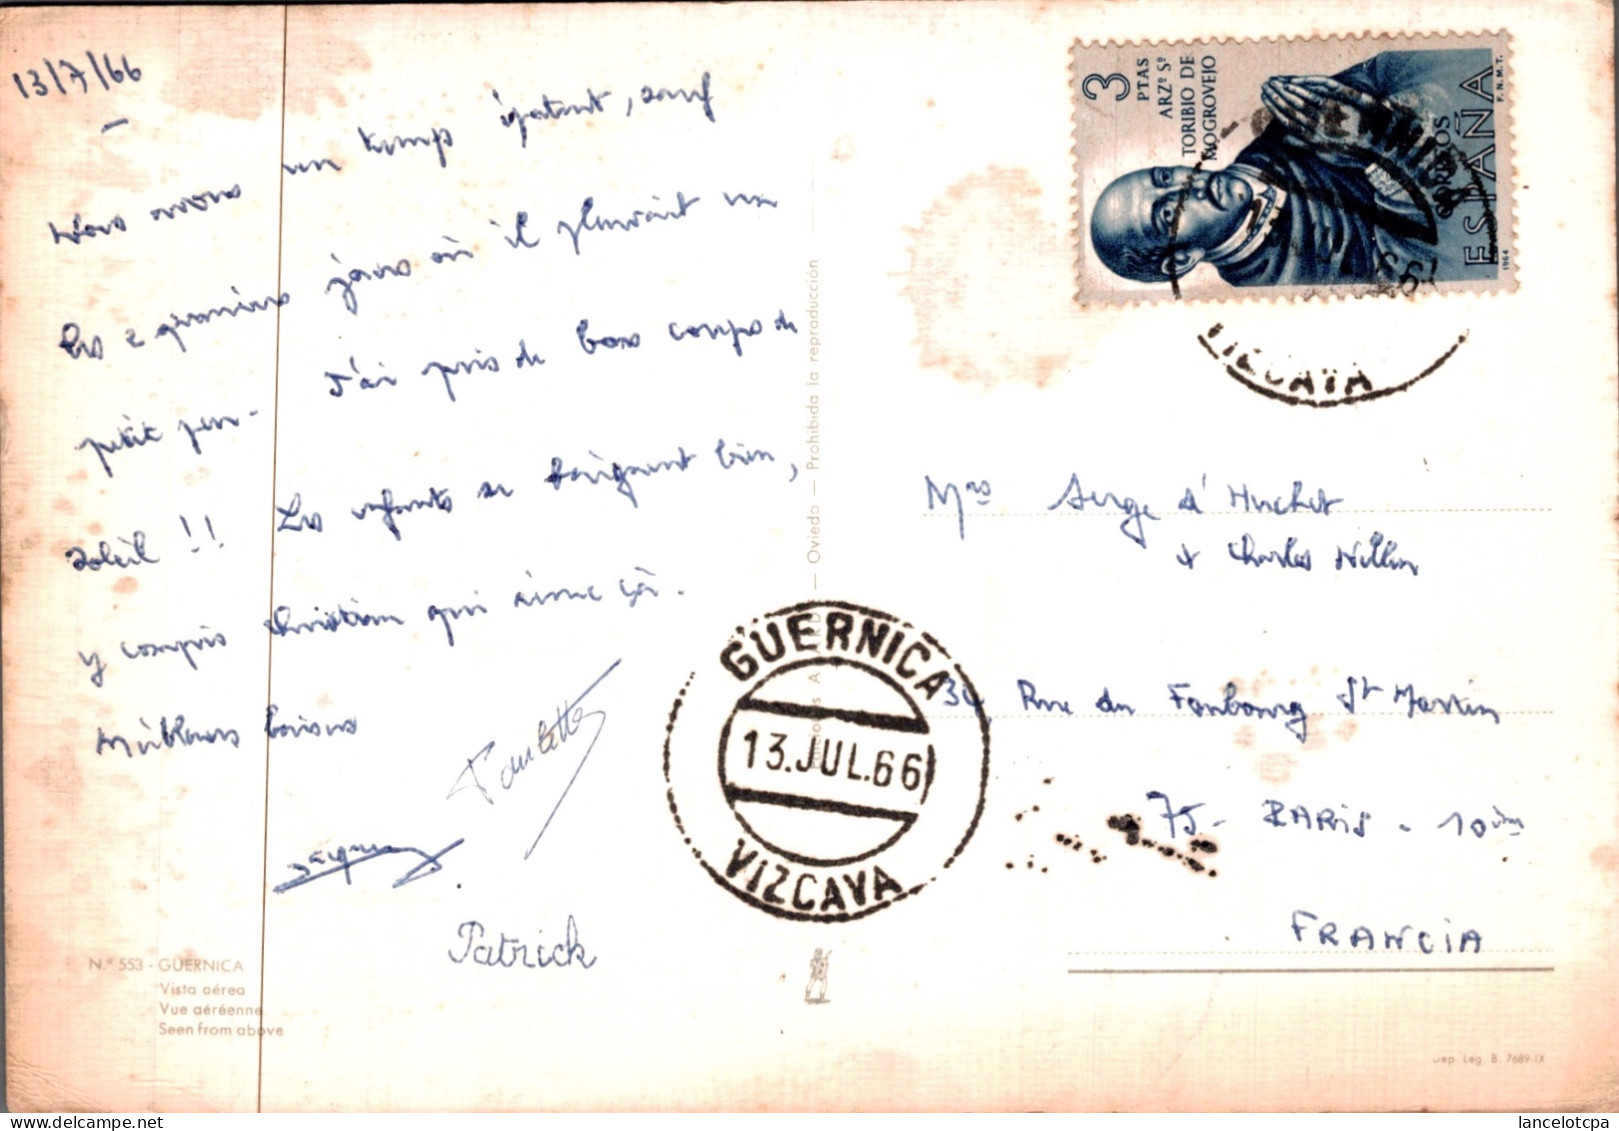 13/7/66
Nous avons un temps épatant, sauf
les 2 premiers jours où il pleuvait un
petit peu. J'ai pris de bons coups de
soleil !! Les enfants se baignent bien,
y compris Christian qui aime çà.
Meilleurs baisers
Paulette
Jacques
Patrick
N.º 553 - GUERNICA
Vista aérea
Vue aéréenne
Seen from above
Oviedo — Prohibida la reproducción
3 PTAS
ARZº Sº
TORIBIO DE
MOGROVEJO
CORREOS
ESPAÑA
F.N.M.T.
1964
VIZCAYA
GUERNICA
13.JUL.66
VIZCAYA
Mrs Serge d'Huchet
+ Charles
34, Rue du Faubourg St Martin
75 - PARIS - 10ième
FRANCIA
Dep. Leg. B. 7689-IX
lancelotcpa